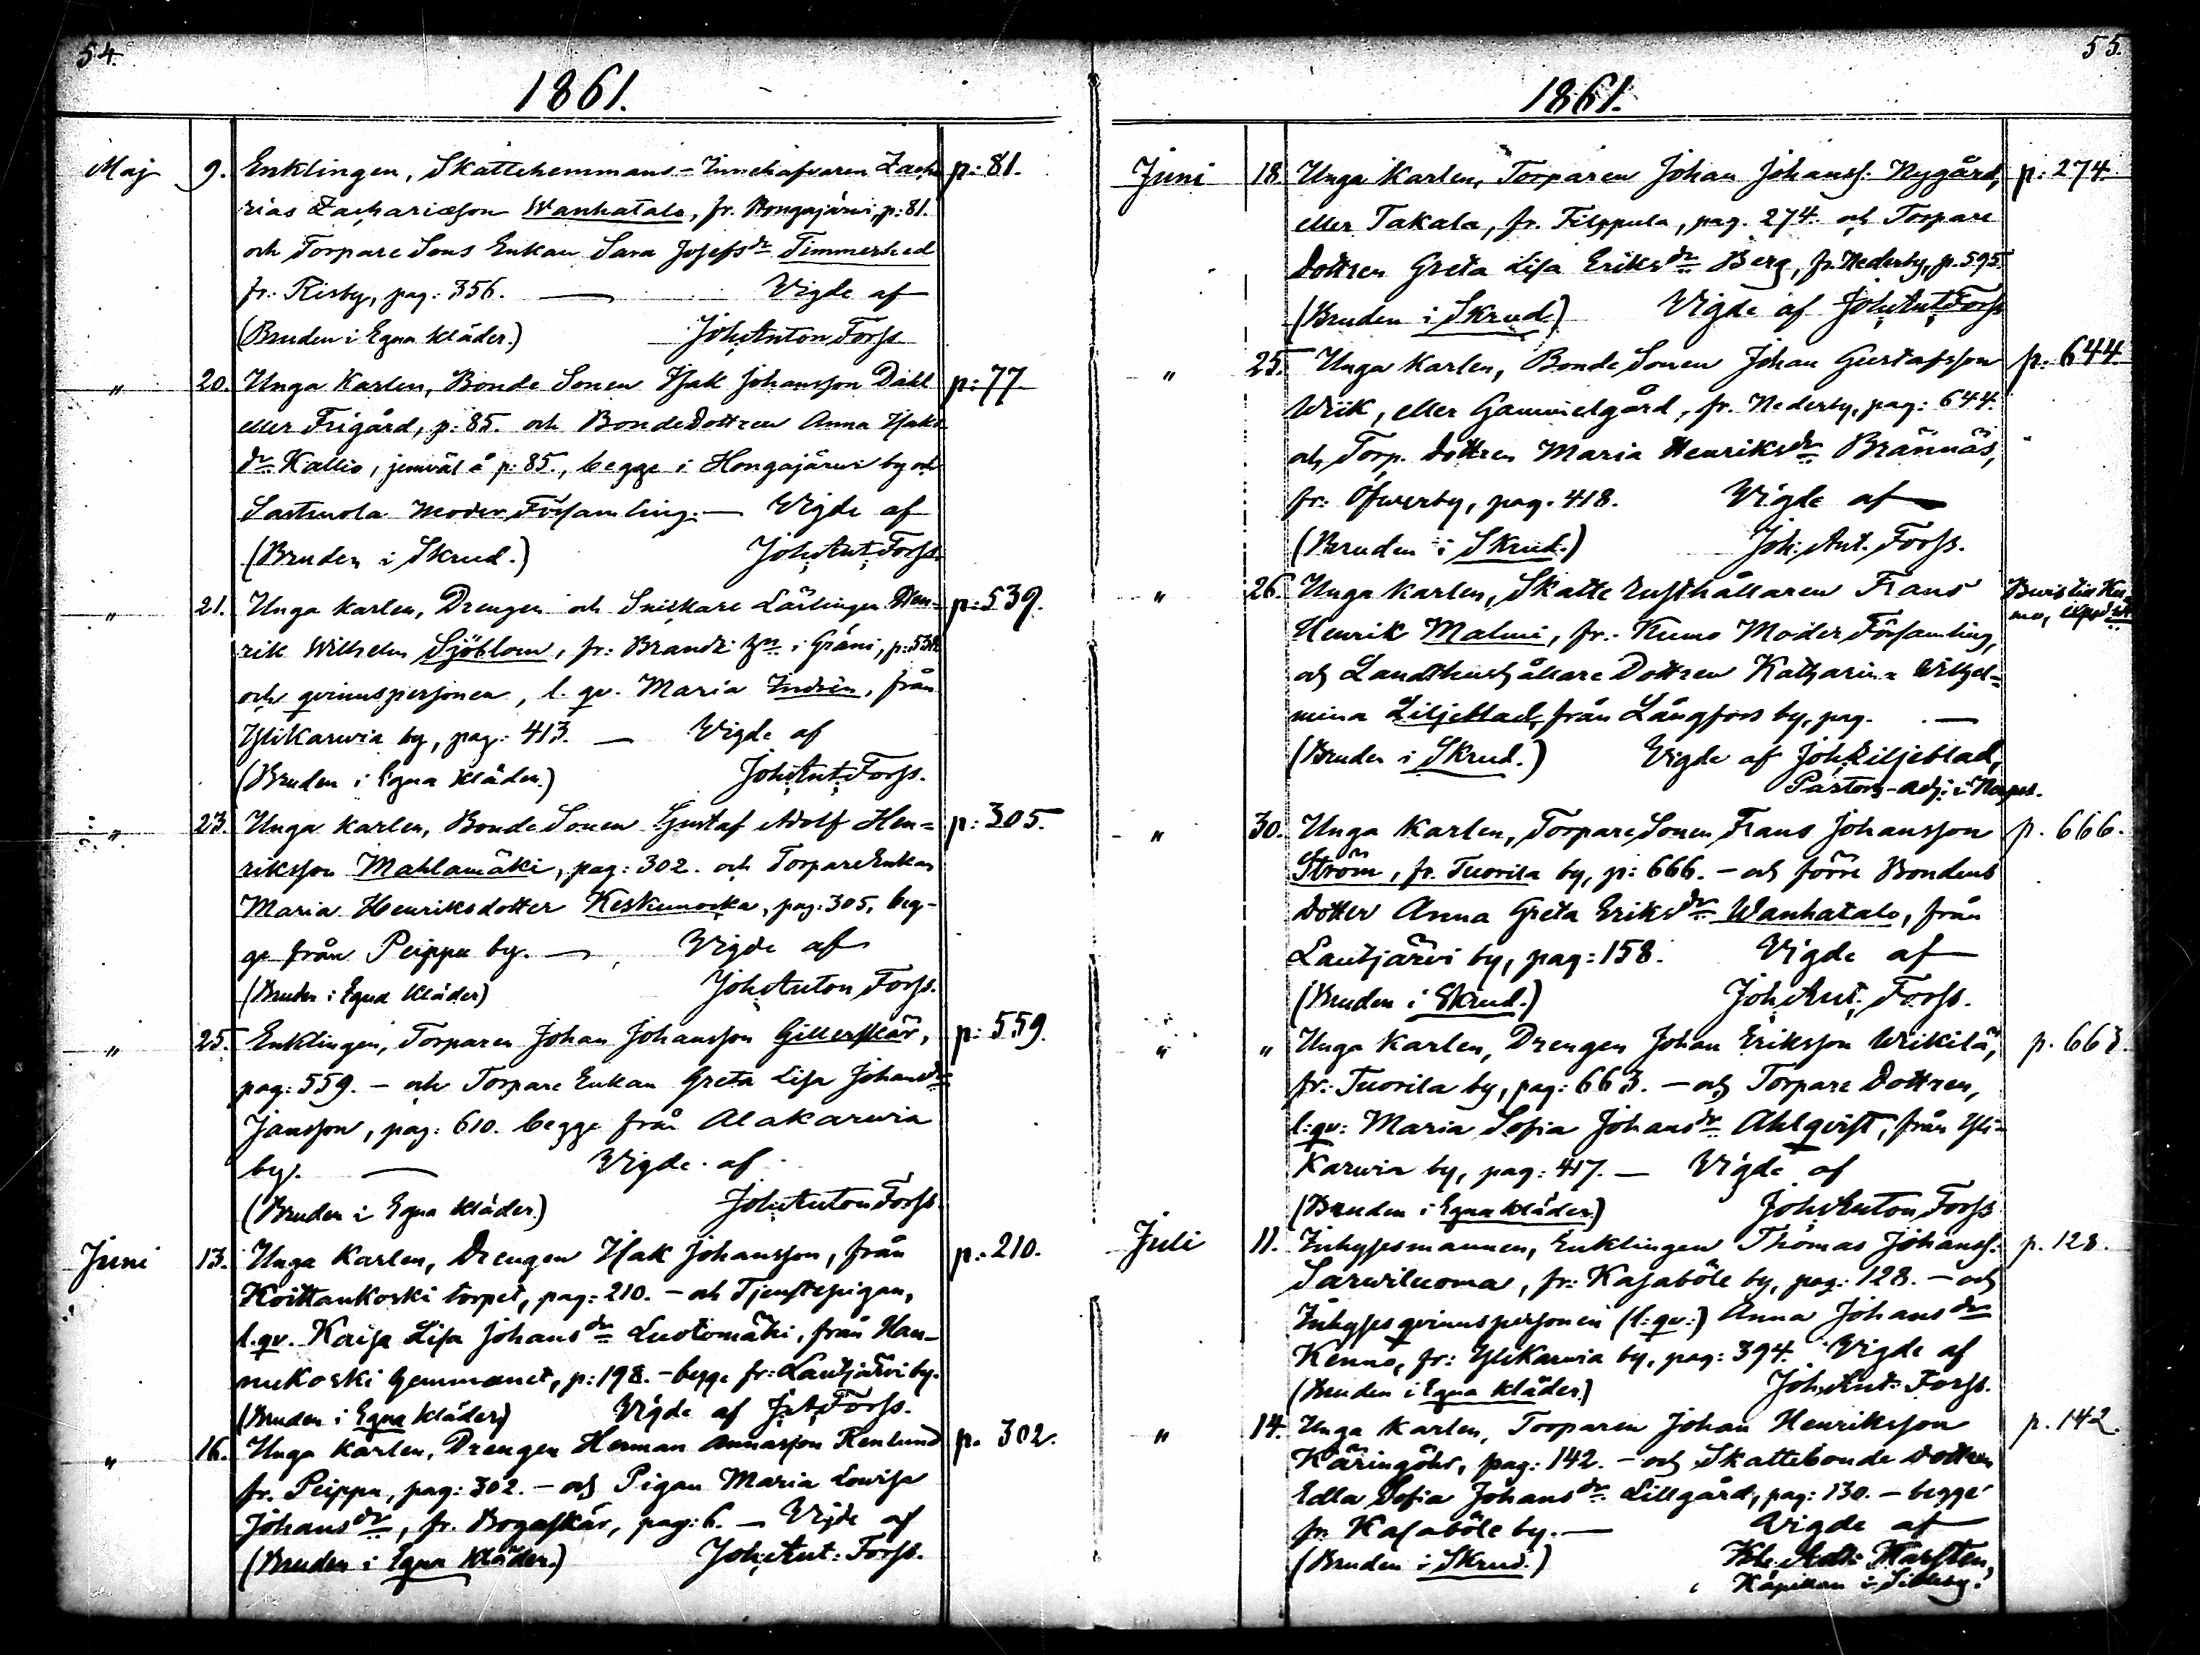 54.
1861.
Maj 9. Enklingen, Skattehemmans-Innehafvaren Zacha p: 81.
rias Zachariæson Wanhatalo, fr. Hongajärvi, p: 81.
och Torpare Sons Enkan Sara Josefsdr Timmerhed
fr: Risby, pag: 356. — Vigde af
(Bruden i Egna kläder.) Joh: Anton Forss.
" 20. Unga Karlen, Bonde Sonen Isak Johansson Dahl p: 77
eller Frigård, p: 85. och Bonde Dottren Anna Isaks
dr Kallio, jemväl å p: 85., begge i Hongajärvi by och
Sastmola Moder Församling. — Vigde af
(Bruden i Skrud.) Joh: Ant: Forss.
" 21. Unga karlen, Drengen och Snickare Lärlingen Hen- p: 539.
rik Wilhelm Sjöblom, fr: Brandt: i Gräni, p: 538
och qvinnspersonen, l. qv. Maria Indrén, från
Ylikarvia by, pag: 413. — Vigde af
(Bruden i Egna kläder.) Joh: Ant: Forss.
" 23. Unga karlen, Bonde Sonen Gustaf Adolf Hen= p: 305.
riksson Mahlamäki, pag: 302. och Torpare Enkan
Maria Henriksdotter Keskumocka, pag: 305, beg-
ge från Peippu by. — Vigde af
(Bruden i Egna kläder) Joh: Anton Forss.
" 25. Enklingen, Torparen Johan Johansson Gillerskär, p: 559.
pag: 559. — och Torpare Enkan Greta Lisa Johansdr
Jansson, pag: 610. begge från Alakarvia
by. — Vigde af
(Bruden i Egna kläder.) Joh: Anton Forss.
Juni 13. Unga Karlen, Drengen Isak Johansson, från p: 210.
Koittankoski torpet, pag: 210. — och Tjenstepigan,
l. qv. Kaisa Lisa Johansdr Luotomäki, från Han-
nukoski hemmanet, p: 198. — begge fr: Lautjärvi by.
(Bruden i Egna kläder) Vigde af J: A: Forss.
" 16. Unga karlen, Drengen Herman Annasson Renlund p. 302.
fr. Peippu, pag: 302. — och Pigan Maria Lovisa
Johansdr, fr. Bogaskär, pag: 6. — Vigde af
(Bruden i Egna Kläder.) Joh: Ant: Forss.
55.
1861.
Juni 18. Unga karlen, Torparen Johan Johanss: Nygård, p: 274.
eller Takala, fr. Filppula, pag. 274. och Torpare
Dottren Greta Lisa Eriksdr Berg, fr. Nederby, p. 595.
(Bruden i Skrud) Vigde af Joh: Ant: Forss
" 25. Unga karlen, Bonde Sonen Johan Gustafsson p. 644.
Wiik, eller Gammelgård, fr. Nederby, pag: 644.
och Torp. Dottren Maria Henriksdr Brännäs,
fr: Öfwerby, pag. 418. Vigde af
(Bruden i Skrud.) Joh: Ant. Forss.
" 26. Unga karlen, Skatte Rusthållaren Frans Bevis till Ku-
Henrik Malmi, fr. Kumo Moder Församling, mo,
och Landthushållare Dottren Katharina Wilhel=
mina Liljeblad, från Långfors by, pag. —
(Bruden i Skrud.) Vigde af Joh: Liljeblad,
Pastors-adj: i
" 30. Unga karlen, Torpare Sonen Frans Johansson p. 666.
Ström, fr. Tuorila by, p: 666. — och förre Bondens
Dotter Anna Greta Eriksdr Wanhatalo, från
Lautjärvi by, pag: 158. Vigde af
(Bruden i Skrud.) Joh: Ant. Forss.
" " Unga Karlen, Drengen Johan Eriksson Wiikilä, p. 663.
fr: Tuorila by, pag: 663. — och Torpare Dottren,
l: qv: Maria Sofia Johansdr Ahlqvist, från Yli-
karvia by, pag: 417. — Vigde af
(Bruden i Egna kläder) Joh: Anton Forss
Juli 11. Inhysesmannen, Enklingen Thomas Johanss: p. 128.
Sarviluoma, fr: Kasaböle by, pag: 128. — och
Inhyses qvinnspersonen (l: qv:) Anna Johansdr
Kenno, fr: Ylikarvia by, pag: 394. Vigde af
(Bruden i Egna kläder) Joh: Ant: Forss.
" 14. Unga karlen, Torparen Johan Henriksson p. 142.
Käringöhr, pag: 142. — och Skattebonde Dottren
Edla Sofia Johansdr Lillgård, pag: 130. — begge
fr. Kasaböle by. — Vigde af
(Bruden i Skrud.)
Kapellan i